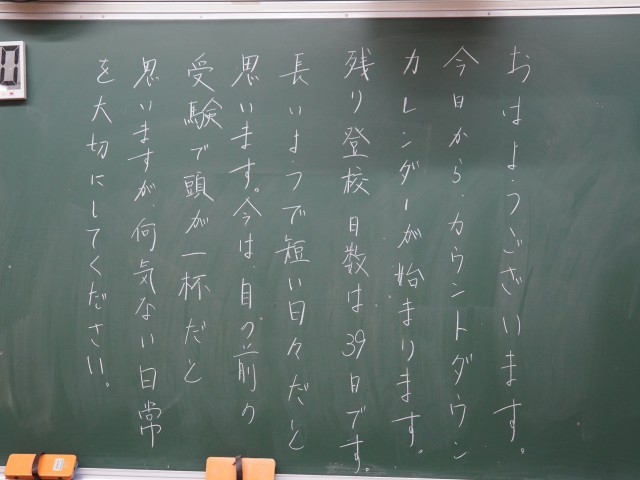 おはようございます。
今日からカウントダウン
カレンダーが始まります。
残り登校日数は39日です。
長いようで短い日々だと
思います。今は、目の前の
受験で頭が一杯だと
思いますが、何気ない日常
を大切にしてください。